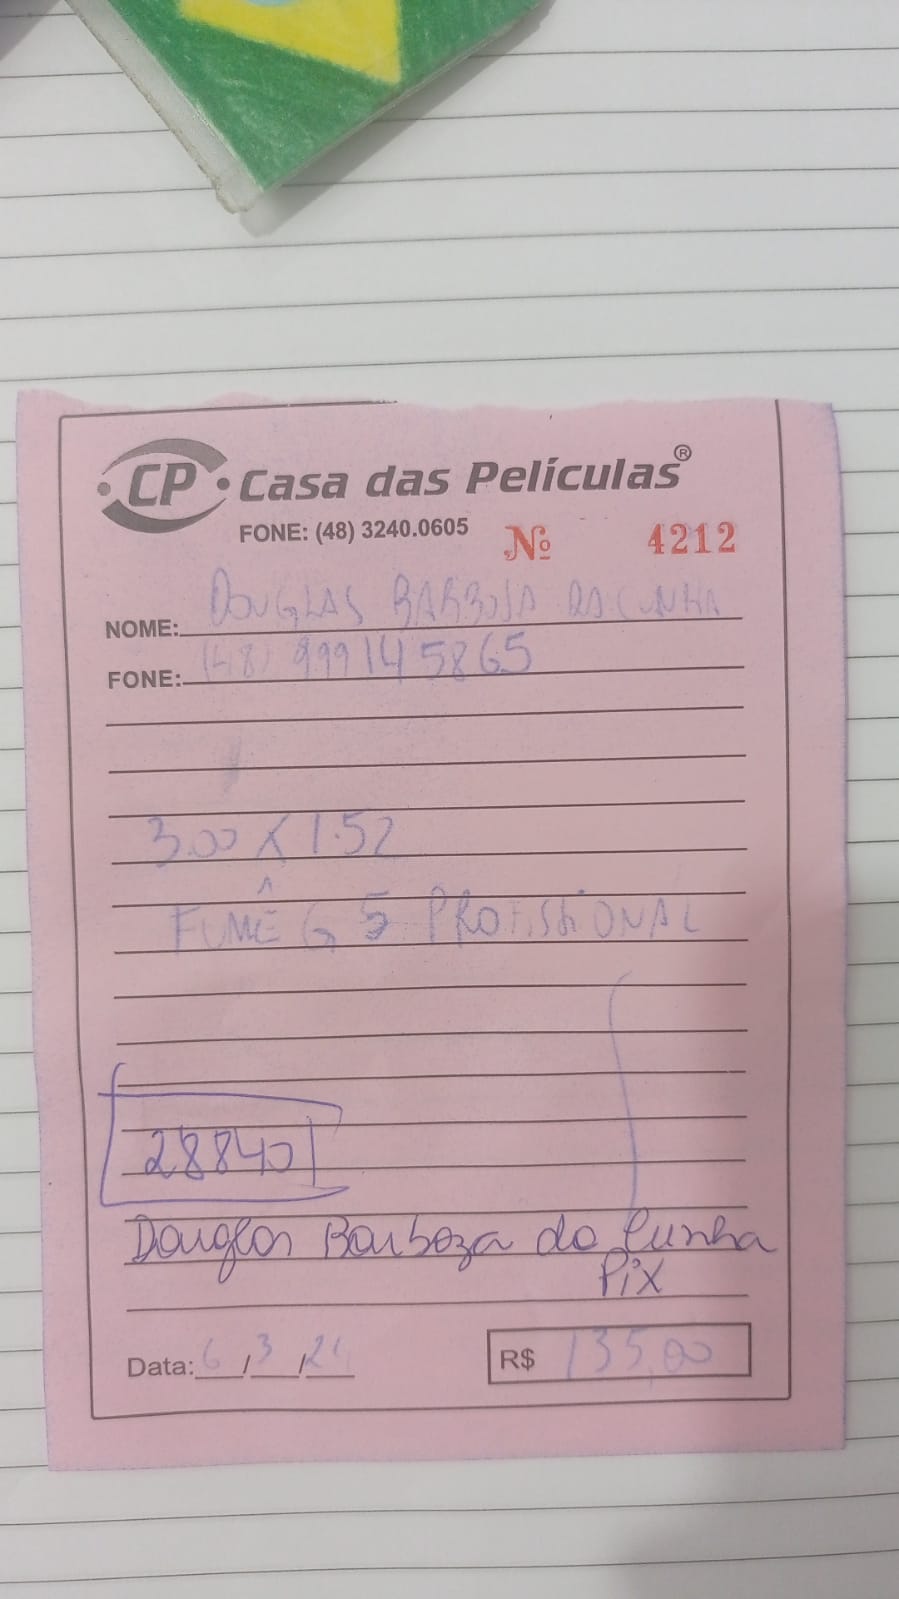 CP Casa das Películas®
FONE: (48) 3240.0605 Nº 4212
NOME: DOUGLAS BARBOSA DA CUNHA
FONE: (48) 999145865
3.00 X 1.52
FUMÊ G 5 PROFISSIONAL
28840
Douglas Barboza da Cunha
Pix
Data: 6/3/ R$ 135,00